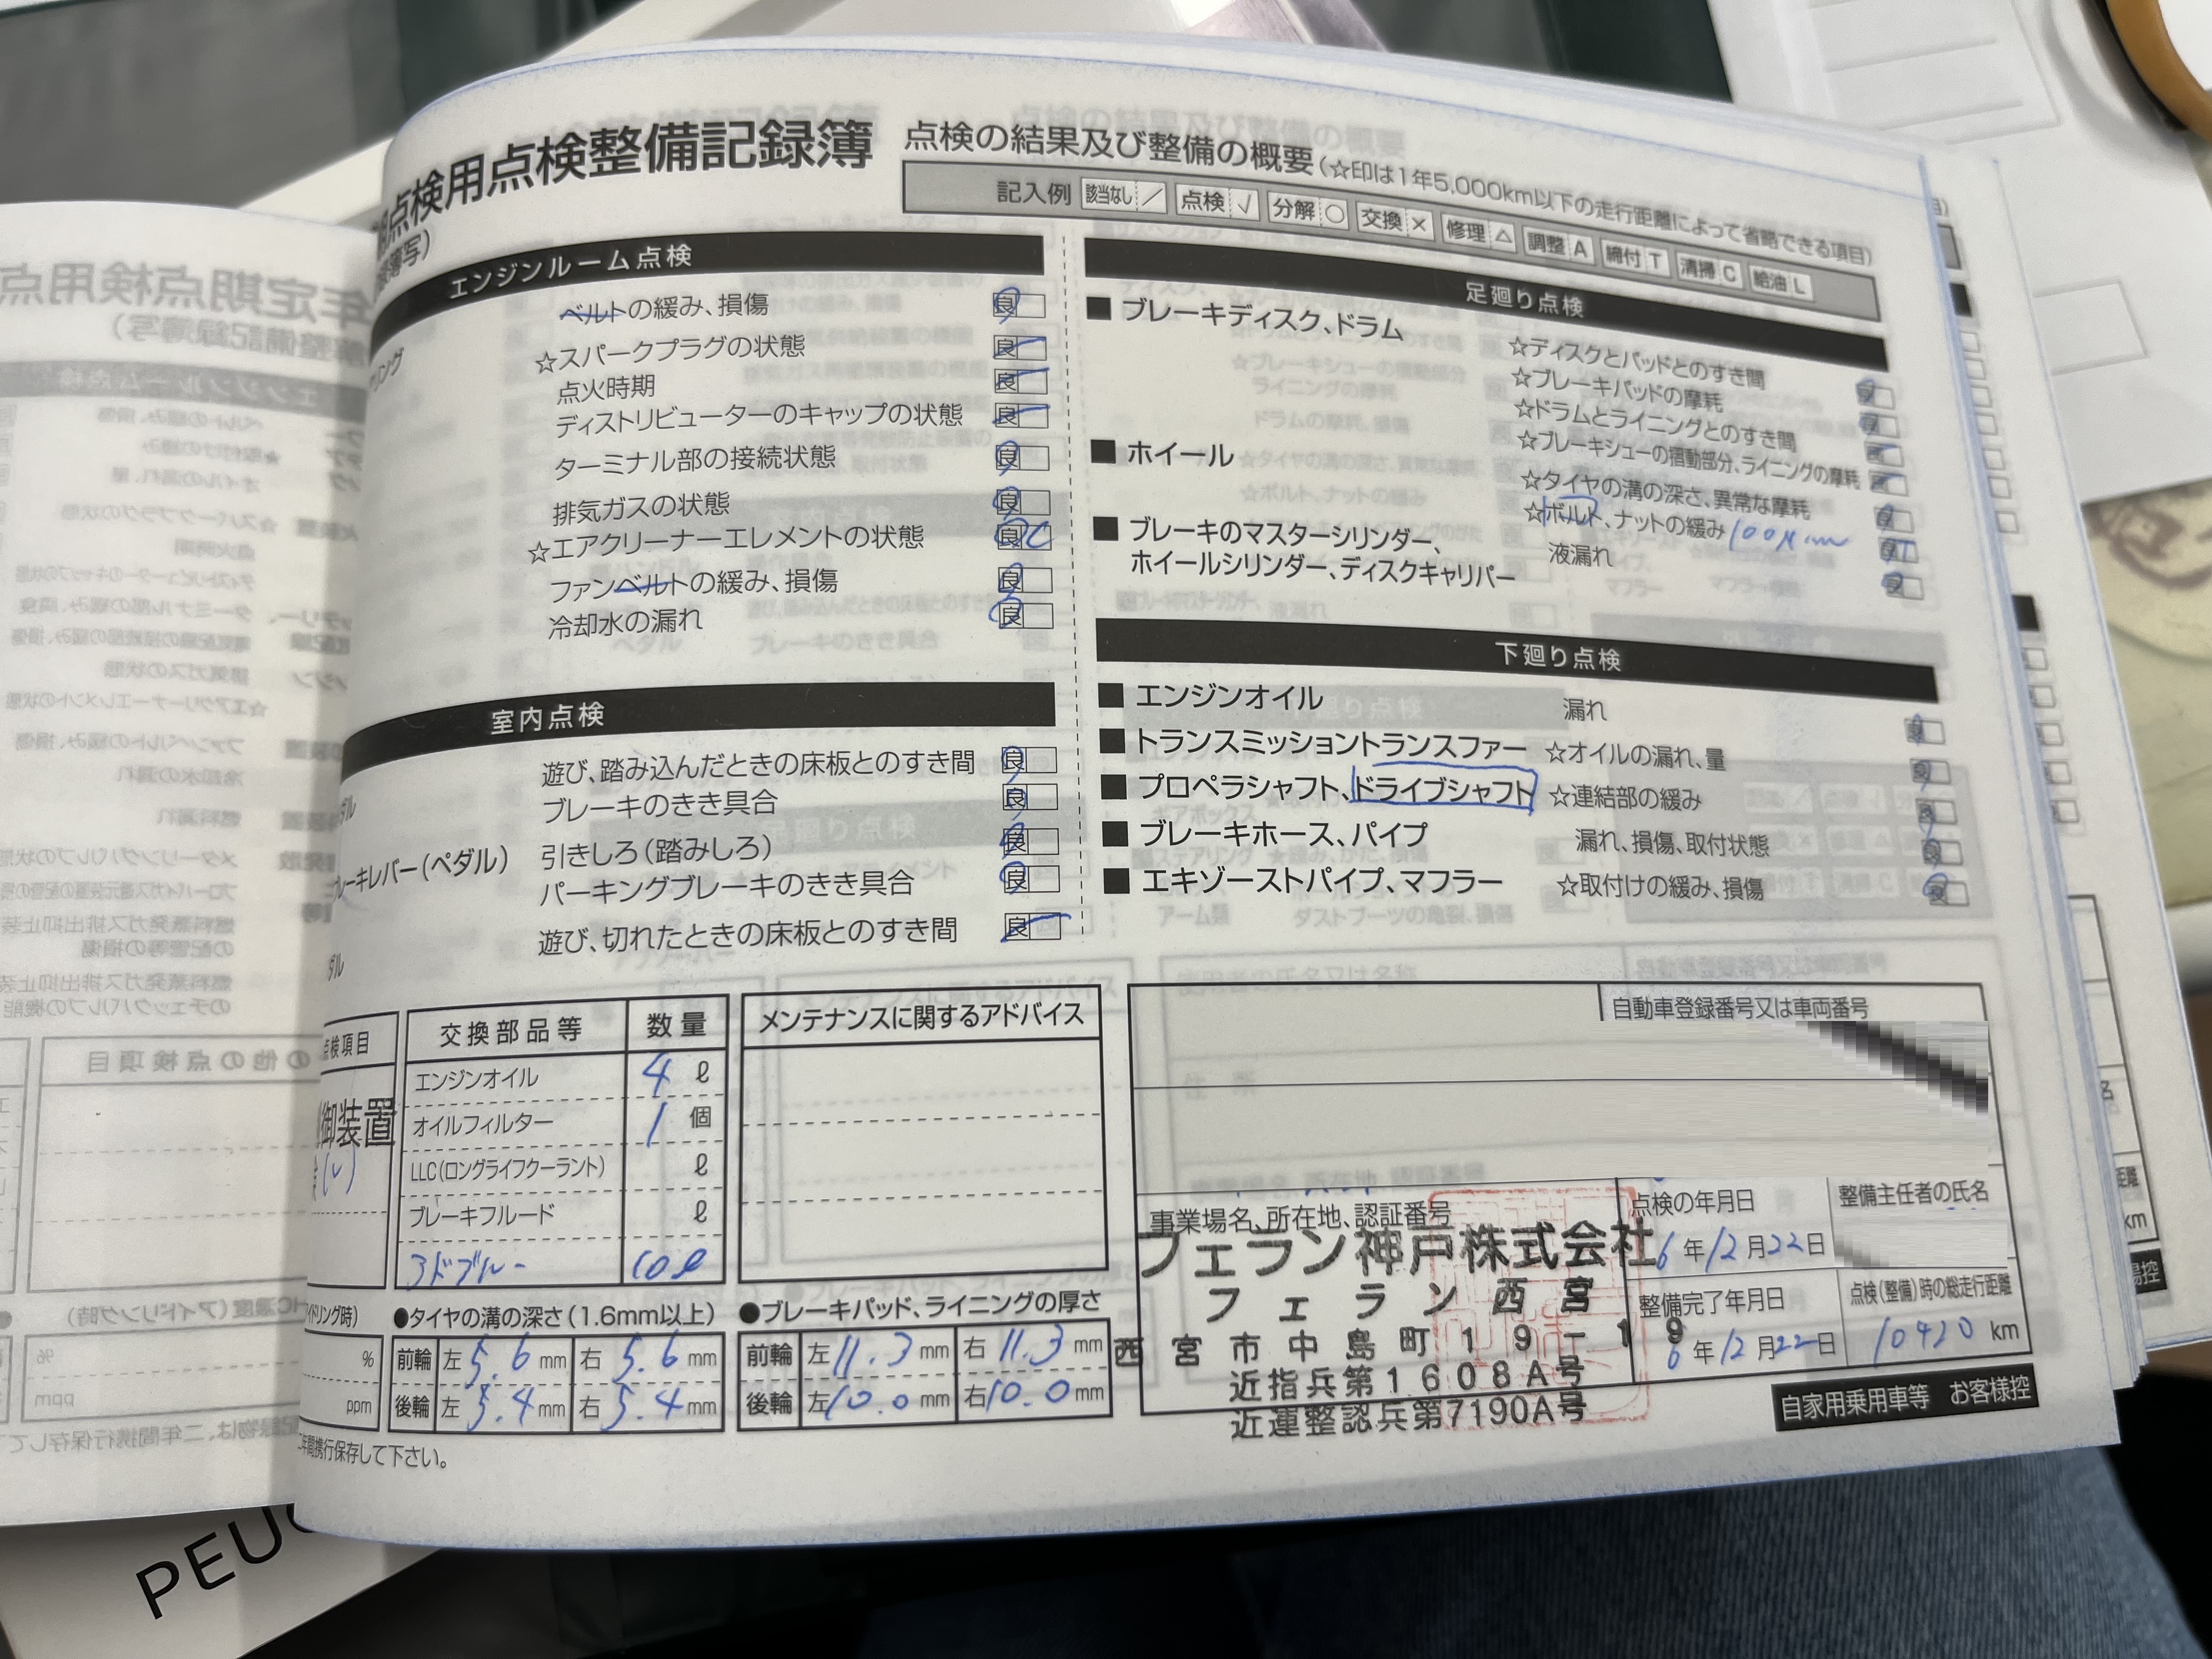 期点検用点検整備記録簿
点検の結果及び整備の概要(☆印は1年5,000km以下の走行距離によって省略できる項目)
記入例 該当なし / 点検 √ 分解 ○ 交換 × 修理 △ 調整 A 締付 T 清掃 C 給油 L
エンジンルーム点検
ベルトの緩み、損傷 良
☆スパークプラグの状態 良
点火時期 良
ディストリビューターのキャップの状態 良
ターミナル部の接続状態 良
排気ガスの状態 良
☆エアクリーナーエレメントの状態 良 C
ファンベルトの緩み、損傷 良
冷却水の漏れ 良
室内点検
遊び、踏み込んだときの床板とのすき間 良
ブレーキのきき具合 良
ブレーキレバー(ペダル) 引きしろ(踏みしろ) 良
パーキングブレーキのきき具合 良
遊び、切れたときの床板とのすき間 良
足廻り点検
■ ブレーキディスク、ドラム
☆ディスクとパッドとのすき間 良
☆ブレーキパッドの摩耗 良
☆ドラムとライニングとのすき間 良
☆ブレーキシューの摺動部分、ライニングの摩耗 良
■ ホイール
☆タイヤの溝の深さ、異常な摩耗 良
☆ボルト、ナットの緩み 良 T
■ ブレーキのマスターシリンダー、
ホイールシリンダー、ディスクキャリパー
液漏れ 良
下廻り点検
■ エンジンオイル 漏れ 良
■ トランスミッショントランスファー ☆オイルの漏れ、量 良
■ プロペラシャフト、ドライブシャフト ☆連結部の緩み 良
■ ブレーキホース、パイプ 漏れ、損傷、取付状態 良
■ エキゾーストパイプ、マフラー ☆取付けの緩み、損傷 良
点検項目
御装置
交換部品等 数量
エンジンオイル 4 ℓ
オイルフィルター 1 個
LLC(ロングライフクーラント) ℓ
ブレーキフルード ℓ
アドブルー 10ℓ
メンテナンスに関するアドバイス
自動車登録番号又は車両番号
事業場名、所在地、認証番号
フェラン神戸株式会社
フェラン西宮
西宮市中島町19-19
近指兵第1608A号
近運整認兵第7190A号
点検の年月日
6年12月22日
整備主任者の氏名
整備完了年月日
6年12月22日
点検(整備)時の総走行距離
10420 km
%
ppm
●タイヤの溝の深さ(1.6mm以上)
前輪 左 5.6 mm 右 5.6 mm
後輪 左 5.4 mm 右 5.4 mm
●ブレーキパッド、ライニングの厚さ
前輪 左 11.3 mm 右 11.3 mm
後輪 左 10.0 mm 右 10.0 mm
二年間携行保存して下さい。
自家用乗用車等 お客様控
PEU